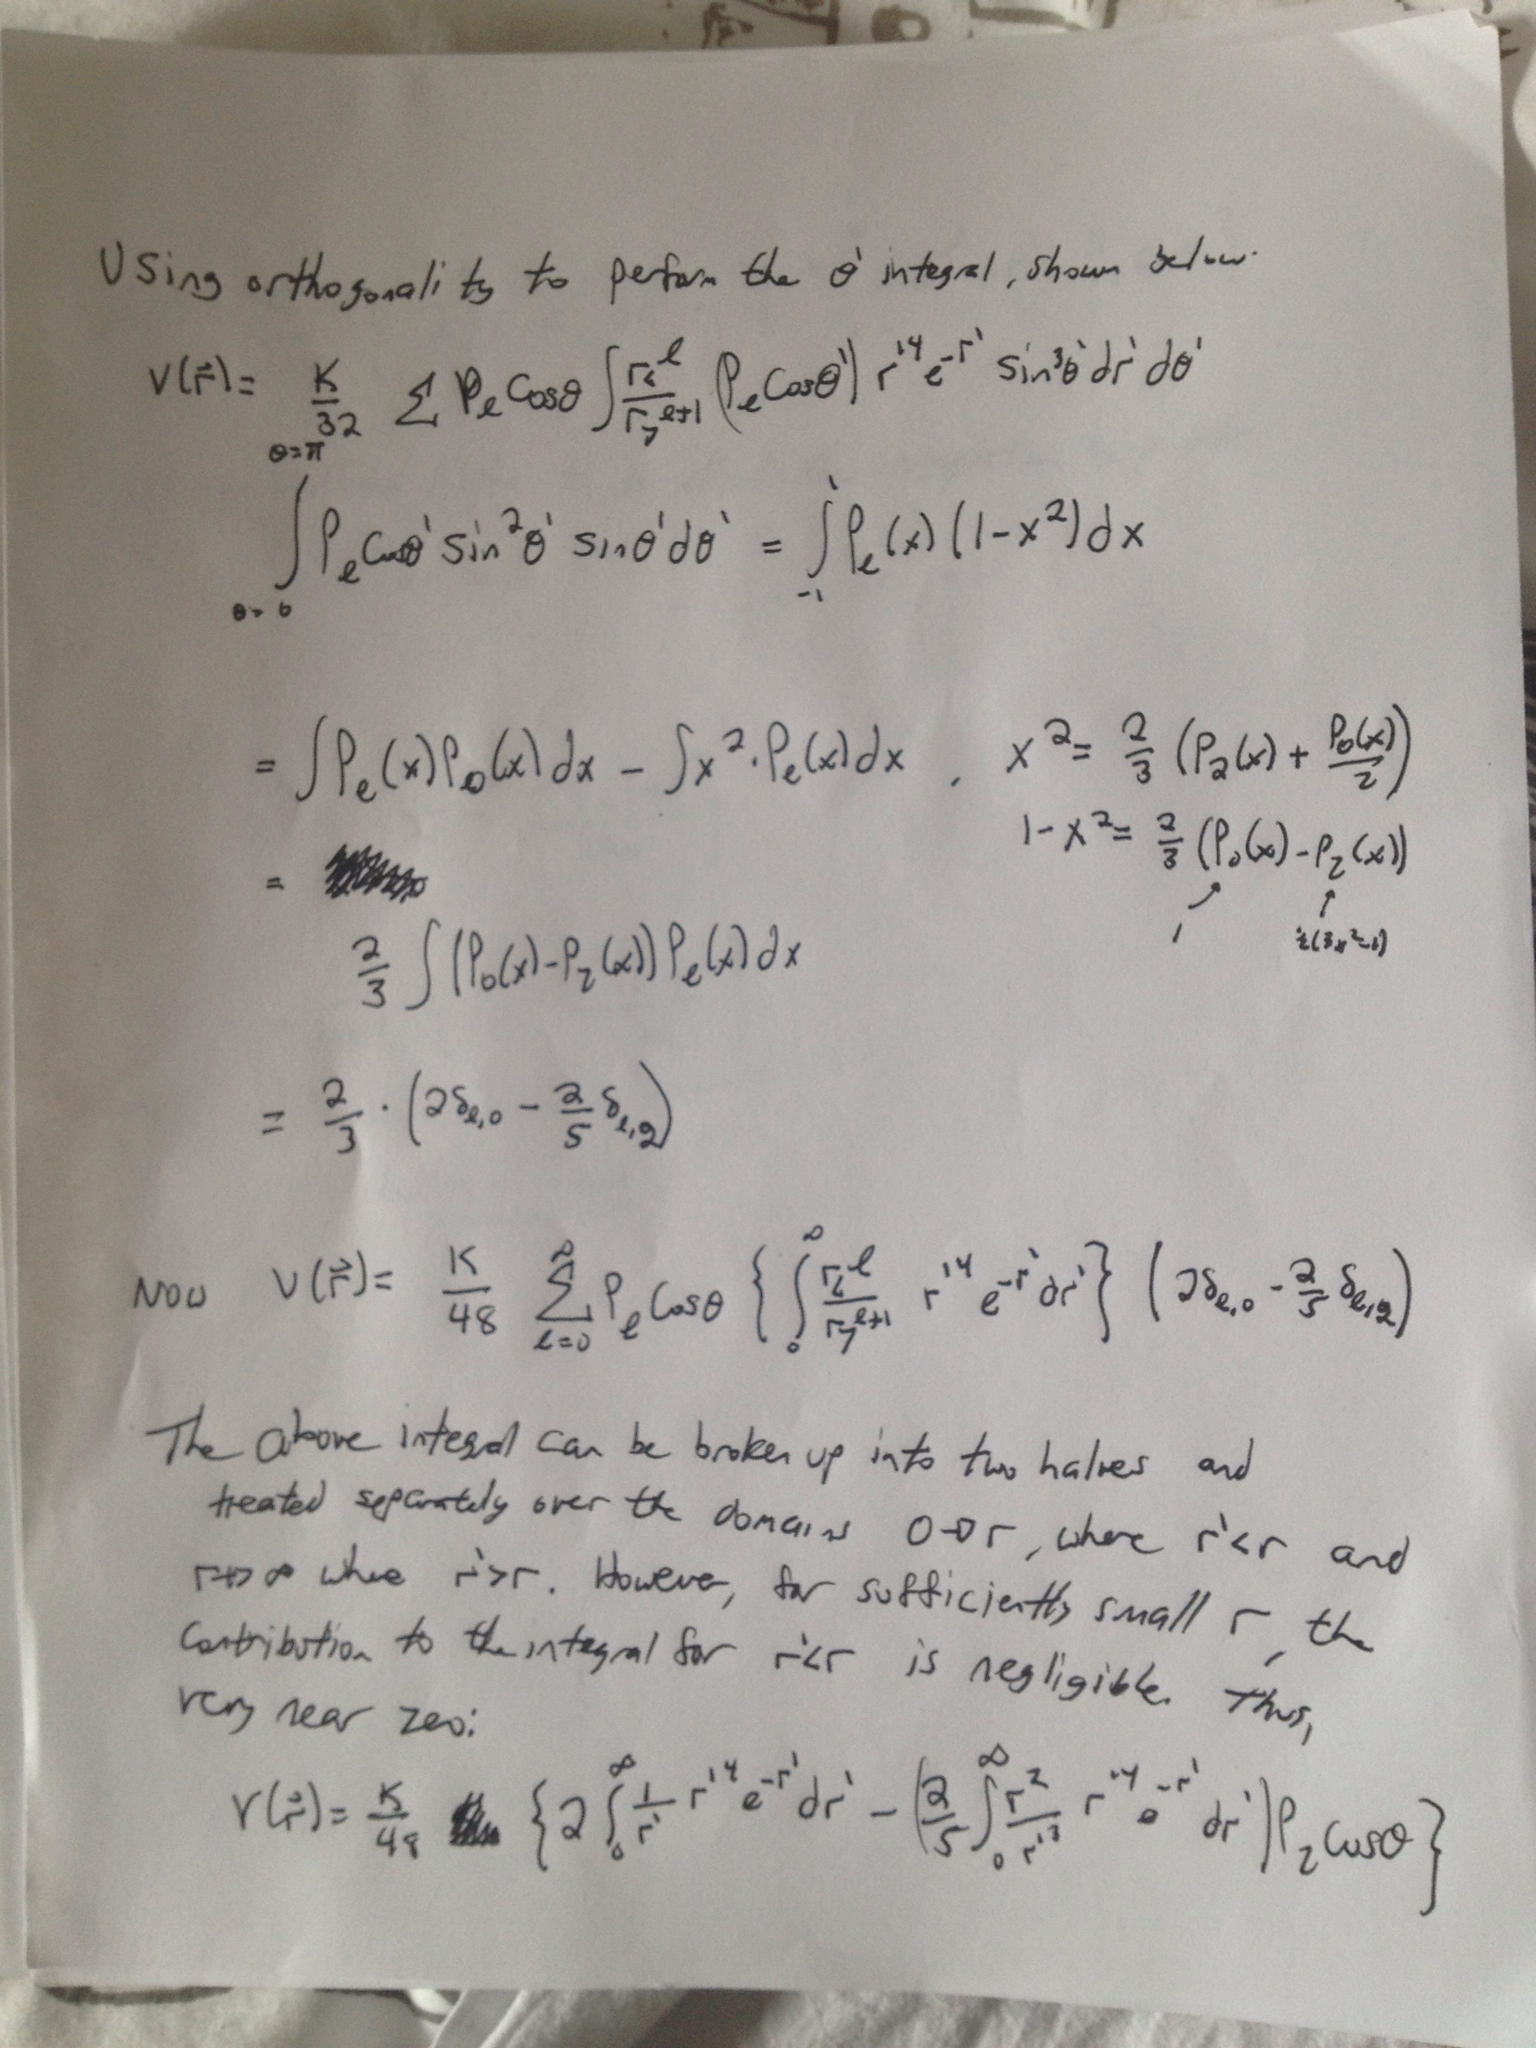 Using orthogonality to perform the θ' integral, shown below.
V(r⃗) = K/32 Σ Pₗ Cosθ ∫ r<^l / r>^(l+1) (Pₗ Cosθ') r'⁴ e^(-r') sin³θ' dr' dθ'
∫_(θ=0)^(θ=π) Pₗ Cosθ' sin²θ' sinθ' dθ' = ∫_(-1)^1 Pₗ(x) (1-x²) dx
= ∫ Pₗ(x) P₀(x) dx - ∫ x² · Pₗ(x) dx , x² = 2/3 (P₂(x) + P₀(x)/2)
1-x² = 2/3 (P₀(x) - P₂(x))
=
1 ½(3x²-1)
2/3 ∫ (P₀(x) - P₂(x)) Pₗ(x) dx
= 2/3 · (2δ_(l,0) - 2/5 δ_(l,2))
Now V(r⃗) = K/48 Σ_(l=0)^∞ Pₗ Cosθ { ∫_0^∞ r<^l / r>^(l+1) r'⁴ e^(-r') dr' } (2δ_(l,0) - 2/5 δ_(l,2))
The above integral can be broken up into two halves and
treated separately over the domains 0→r, where r'<r and
r→∞ where r'>r. However, for sufficiently small r, the
contribution to the integral for r'<r is negligible. Thus,
very near zero:
V(r⃗) = K/48 { 2 ∫_0^∞ 1/r' r'⁴ e^(-r') dr' - (2/5 ∫_0^∞ r²/r'³ r'⁴ e^(-r') dr') P₂ Cosθ }